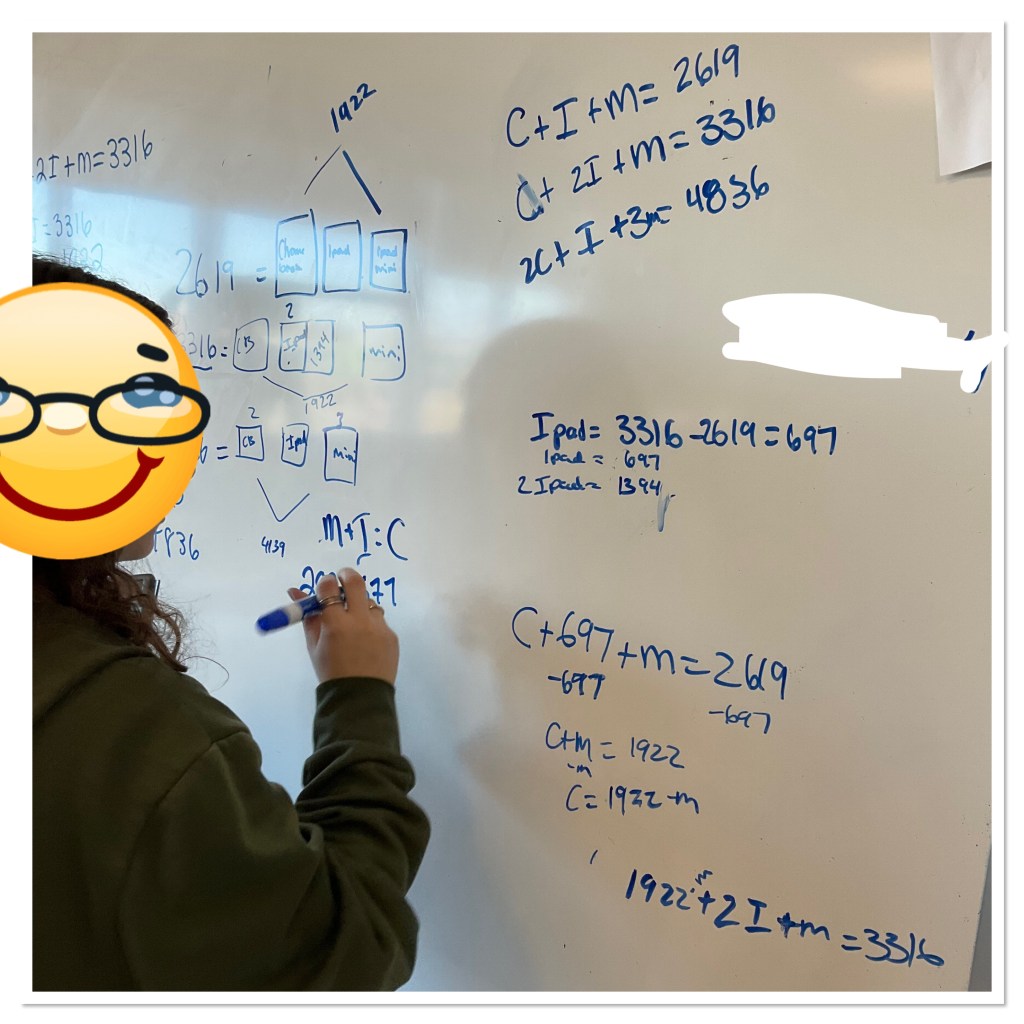 1922
2I+m=3316
I=3316
1922
2619 = Chrome book Ipad Ipad mini
2
3316= CB Ipad 1394 mini
1922
2 3
= CB Ipad Mini
4836 4139
m+I=C
77
C+I+m= 2619
C+ 2I +m= 3316
2C+ I +3m= 4836
Ipad= 3316-2619=697
Ipad = 697
2 Ipad= 1394
C+697+m=2619
-697 -697
C+m = 1922
-m
C= 1922-m
1922+2I+m=3316